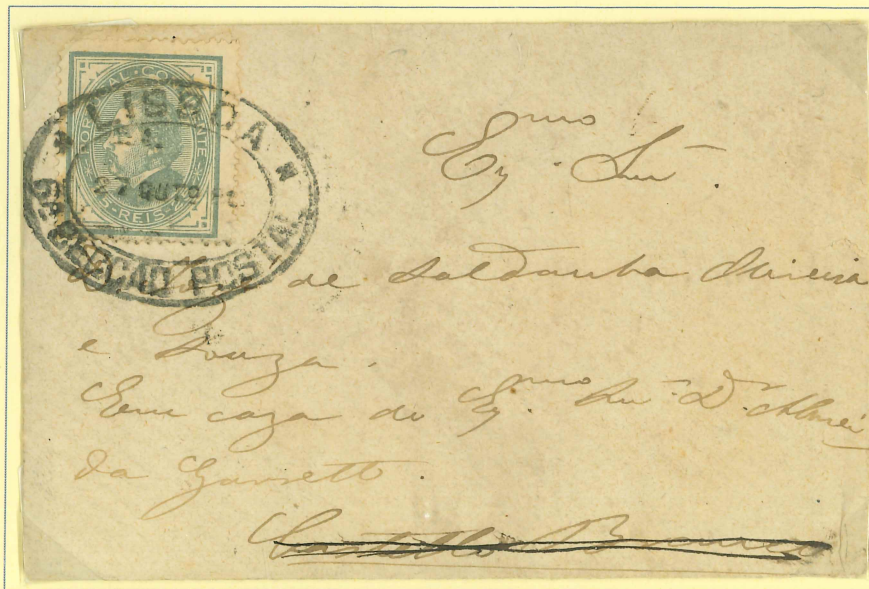 PORTUGAL·CONTINENTE
25·REIS·25
LISBOA
27 OUT
6ª SECÇÃO POSTAL
Exmo Snr.
de Saldanha Oliveira
e Souza.
Em caza do Exmo. Snr. Dr. Almei
da Garrett.
Castello Branco